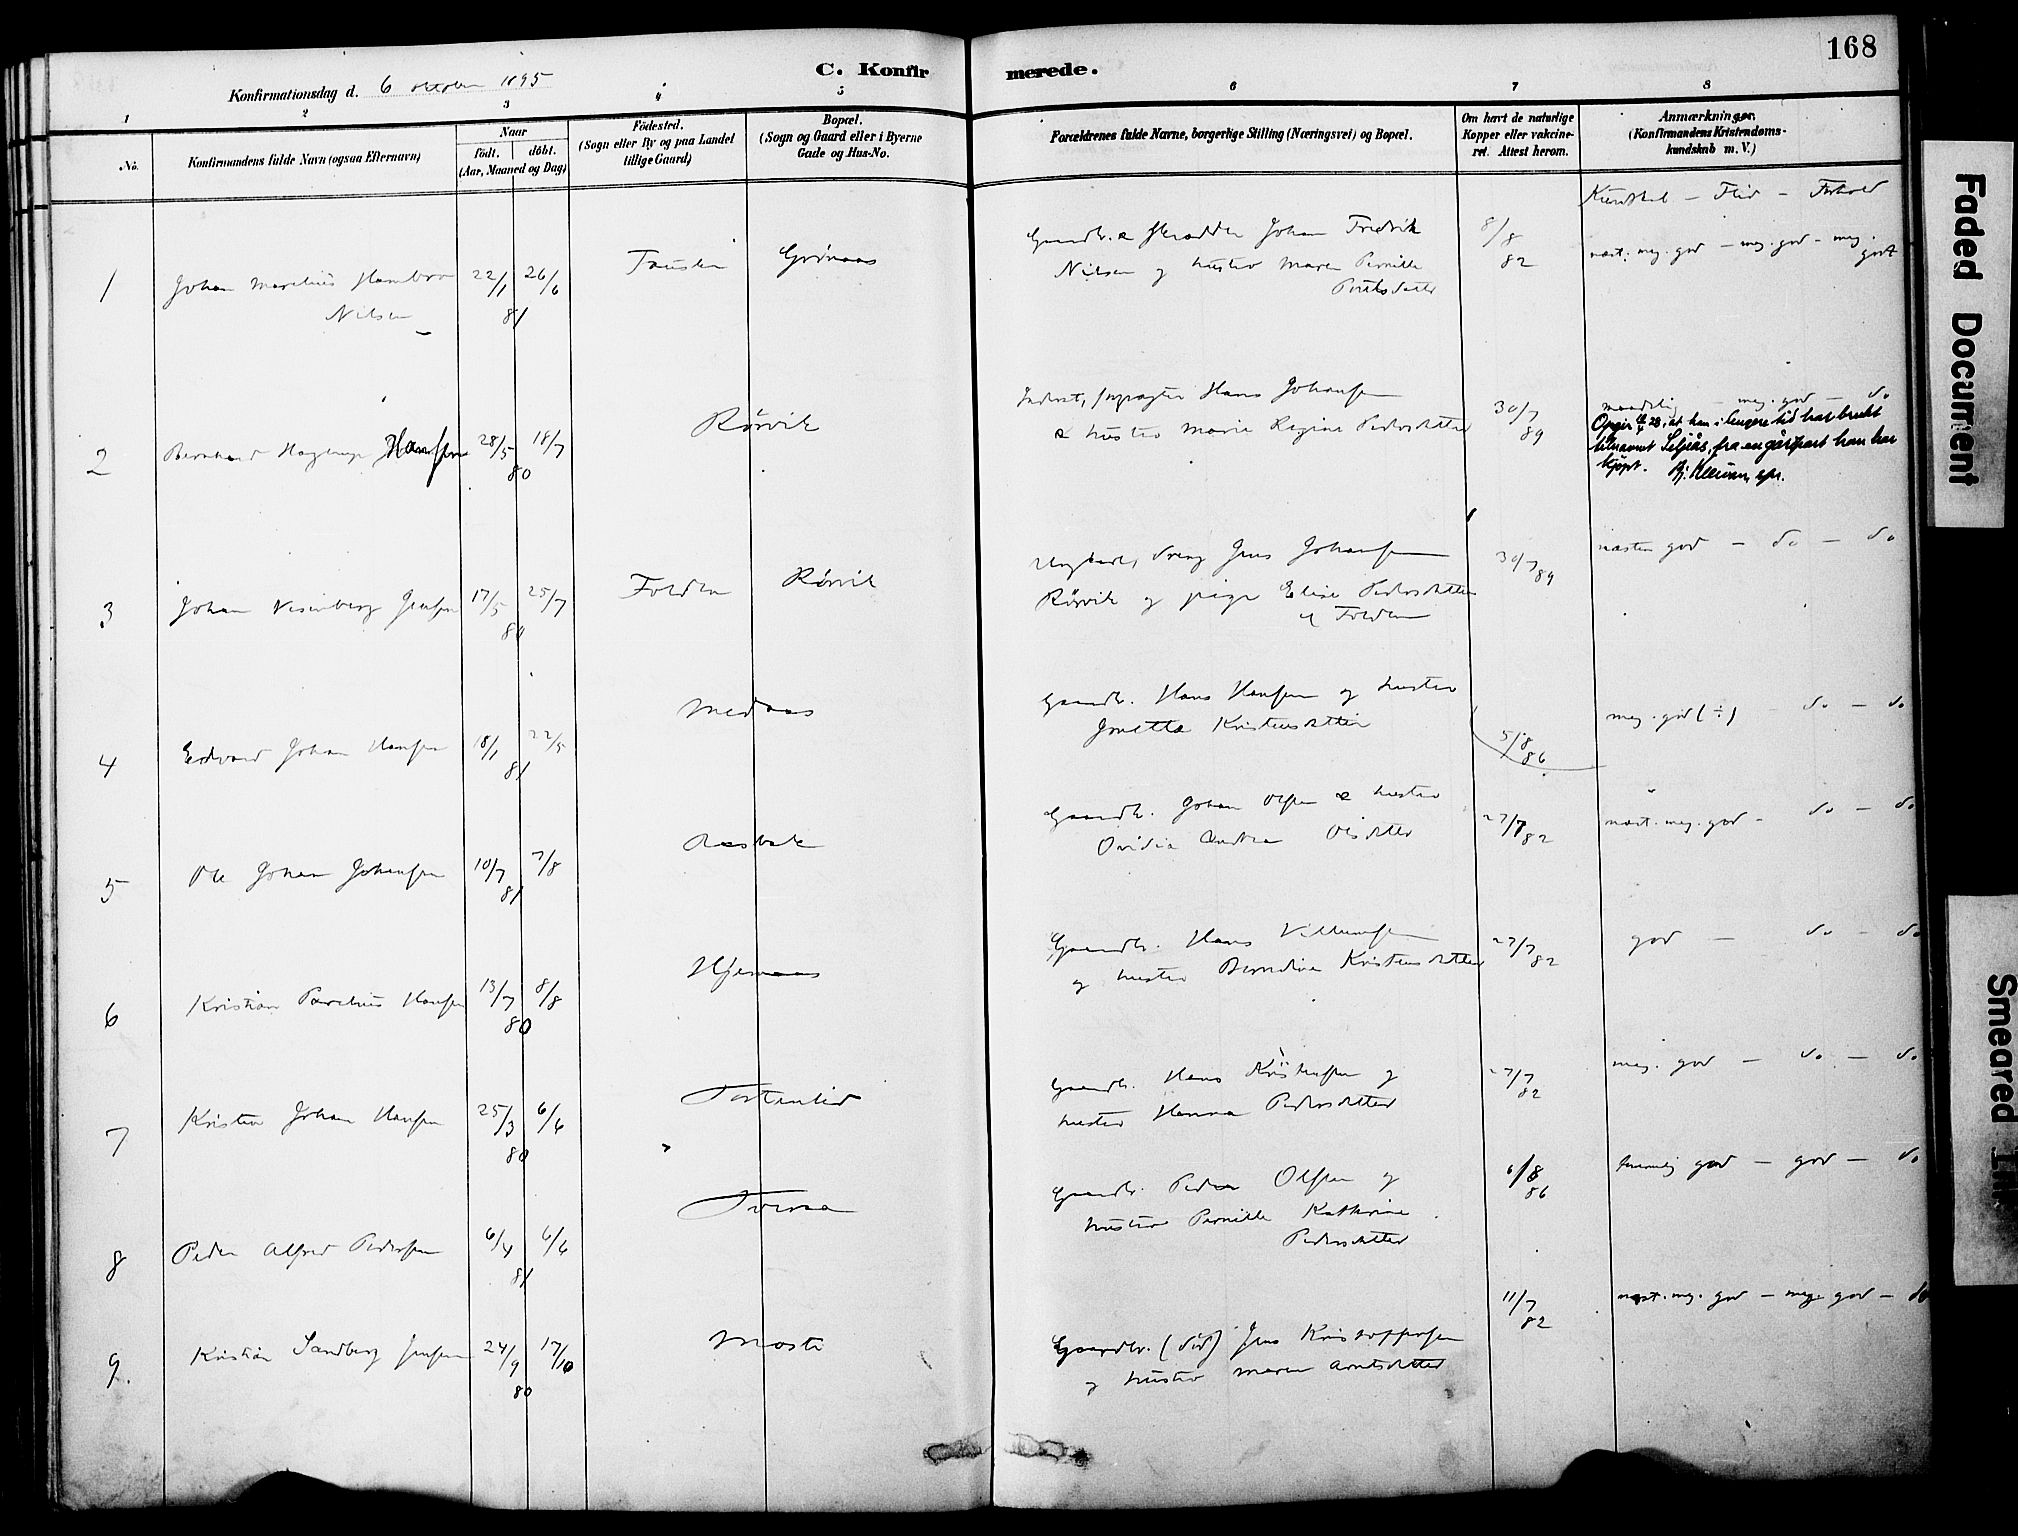 168
C. Konfirmerede.
Konfirmationsdag d. 6 oktober 1895
1 2 3 4 5 6 7 8
No.
Konfirmandens fulde Navn (ogsaa Efternavn)
Naar
født. døbt.
(Aar, Maaned og Dag)
Födested.
(Sogn eller By og paa Landet
tillige Gaard)
Bopæl.
(Sogn og Gaard eller i Byerne
Gade og Hus-No.
Forældrenes fulde Navne, borgerlige Stilling (Næringsvei) og Bopæl.
Om havt de naturlige
Kopper eller vakcine-
ret. Attest herom.
Anmærkninger.
(Konfirmandens Kristendoms-
kundskab m. V.)
Kundskab — Flid — Forhold
1 Johan Marelius Hambro
Nilsen
22/1 26/6
81
Fausken Grønaas
Gaardbr. & skrædder Johan Fredrik
Nilsen og hustru Maren Pernille
8/8
82
næst. meg. god — meg. god — meg.
godt
2 Bernhard Hagerup Hansen
28/5 18/7
80
Rørvik
Hans Johansen
& hustru Marie Regine Pedersdatter
30/7
89
maadelig — meg. god — do
Opgir 28, at han i lengere tid har brukt
tilnavnet Seljeås, fra en gårdpart han har
kjøpt.
3 Johan Jensen
17/5 25/7
80
Folden Rørvik
Ungkarl, dreng Jens Johansen
Rørvik og pige Elise Pedersdatter
af Folden
30/7 89
næsten god — do — do
4 Edvard Johan Hansen
18/1 22/5
81
Medaas
Gaardbr. Hans Hansen og hustru
Jonetta Kristensdatter
5/8
86
meg. god (÷) — do — do
5 Ole Johan Johansen
10/7 7/8
81
Aasbak
Gaardbr. Johan Olsen & hustru
Ovidia Andrea Olsdatter
27/7 82
næst. meg. god — do — do
6 Kristian Parelius Hansen
13/7 8/8
80
Hjemaas
Gaardbr. Hans Villumsen
og hustru Berndine Kristensdatter
27/7 82
god — do — do
7 Kristen Johan Hansen
25/3 6/6
80
Tortenlid
Gaardbr. Hans Kristensen og
hustru Hanna Pedersdatter
27/7
82
meg. god — do — do
8 Peder Alfred Pedersen
6/4 6/6
81
Tveraa
Gaardbr. Peder Olsen og
hustru Pernille Kathrine
Pedersdatter
6/8
86
temmelig god — god — do
9. Kristian Sandberg Jensen
24/9 17/10
80
Moste
Gaardbr. (død) Jens Kristoffersen
og hustru Maren Arntsdatter
11/7
82
næst. meg. god — meg. god — do
Faded Document
Smeared Ink